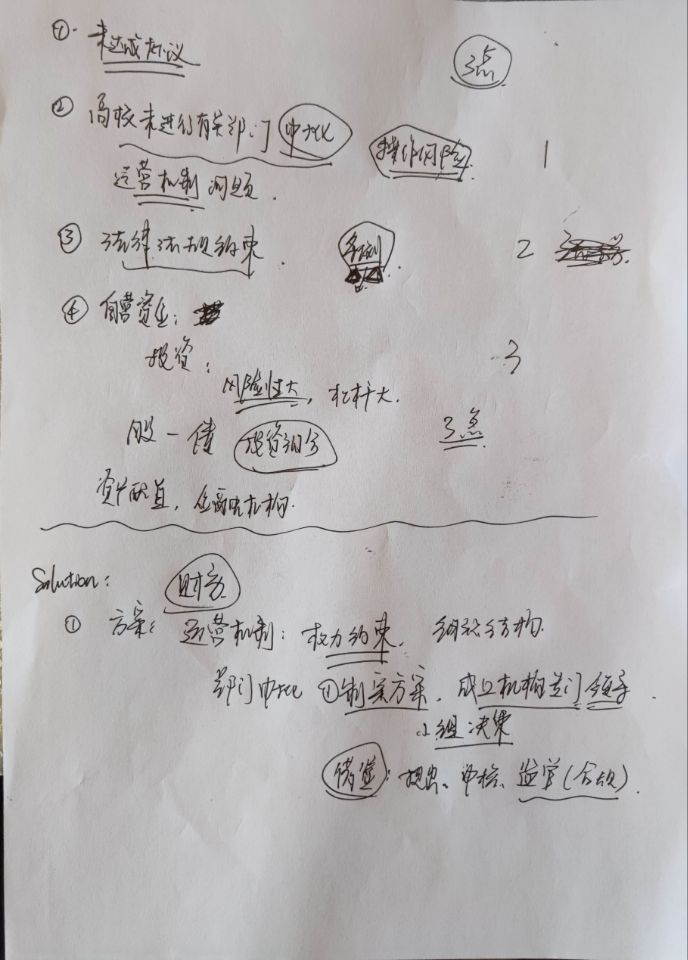 ① 未达成协议 3点
② 高校未进行有关部门 操作风险 1
运营机制问题.
③ 法律法规约束. 2
④ 自营资金:
投资: 3
风险性大, 杠杆大.
股一债 投资细分 3点
资产配置, 金融机构.
Solution: 财务
① 方案: 运营机制: 权力约束, 组织结构.
部门 ①制定方案, 成立机构 领导
小组决策
储蓄: 提出、审核、监管(合规).